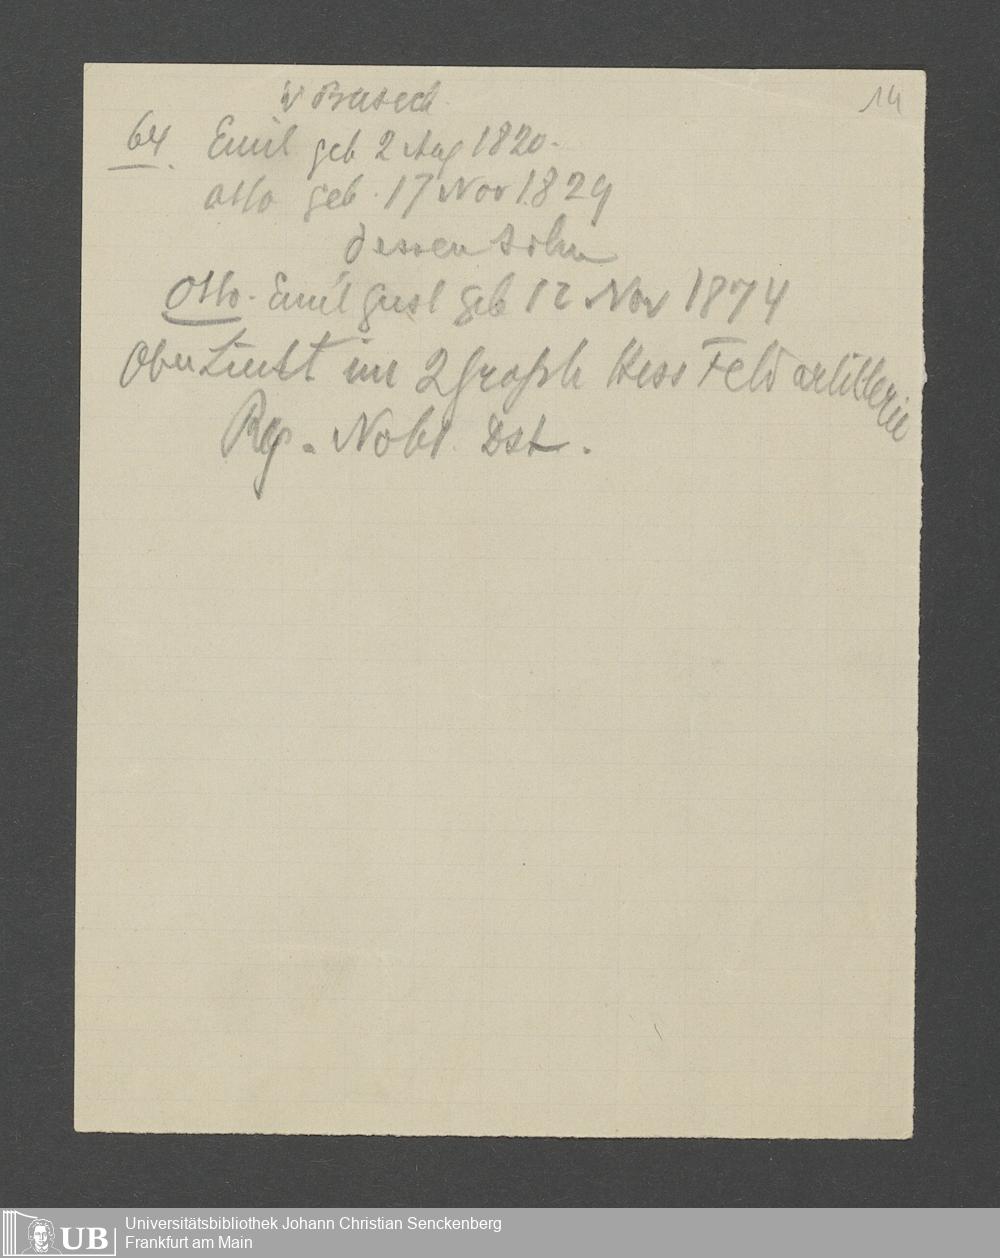 v Buseck
14
64. Emil geb 2 Aug 1820.
Otto geb. 17 Nov 1829
dessen Sohn
Otto. Emil Gust geb 12 Nov 1874
Ober Lieut im 2 Großh Hess Feld artillerie
Reg.
UB Universitätsbibliothek Johann Christian Senckenberg
Frankfurt am Main